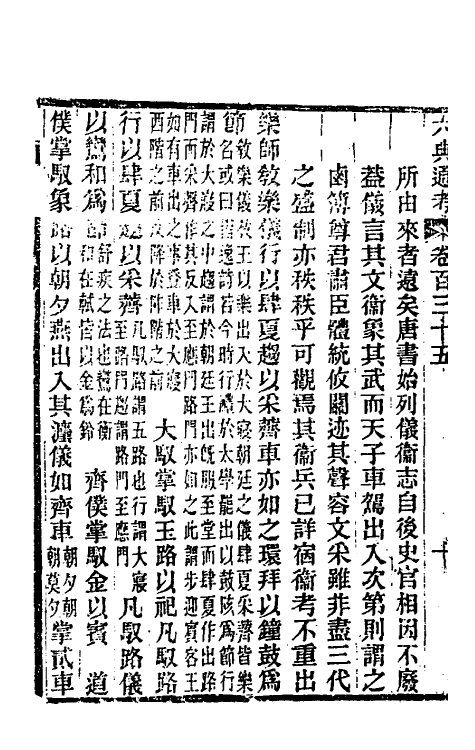 六典通考 卷百三十五 十
所由來者遠矣唐書始列儀衞志自後史官相因不廢
葢儀言其文衞象其武而天子車駕出入次第則謂之
鹵簿尊君肅臣體統攸關迹其聲容文采雖非盡三代
之盛制亦秩秩乎可觀焉其衞兵已詳宿衞考不重出
樂師敎樂儀行以肆夏趨以采薺車亦如之環拜以鐘鼓爲
節敎樂儀敎王以樂出入於大寢朝廷之儀肆夏采薺皆樂
名或曰皆逸詩若今時行禮於大學罷出以鼓陔爲節行
謂於大寢之中趨謂於朝廷王出旣服至堂而肆夏作出路
門而采薺作其反入至應門路門亦如之此謂步迎賓客王
如有車出之事登車於大寢
西階之前反降於阼階之前 大馭掌馭玉路以祀凡馭路
行以肆夏趨以采薺凡馭路謂五路也行謂大寢
至路門趨謂路門至應門 凡馭路儀
以鸞和爲節舒疾之法也鸞在衡
和在軾皆以金爲鈴 齊僕掌馭金以賓 道
僕掌馭象路以朝夕燕出入其灋儀如齊車朝夕朝
朝莫夕 掌貳車